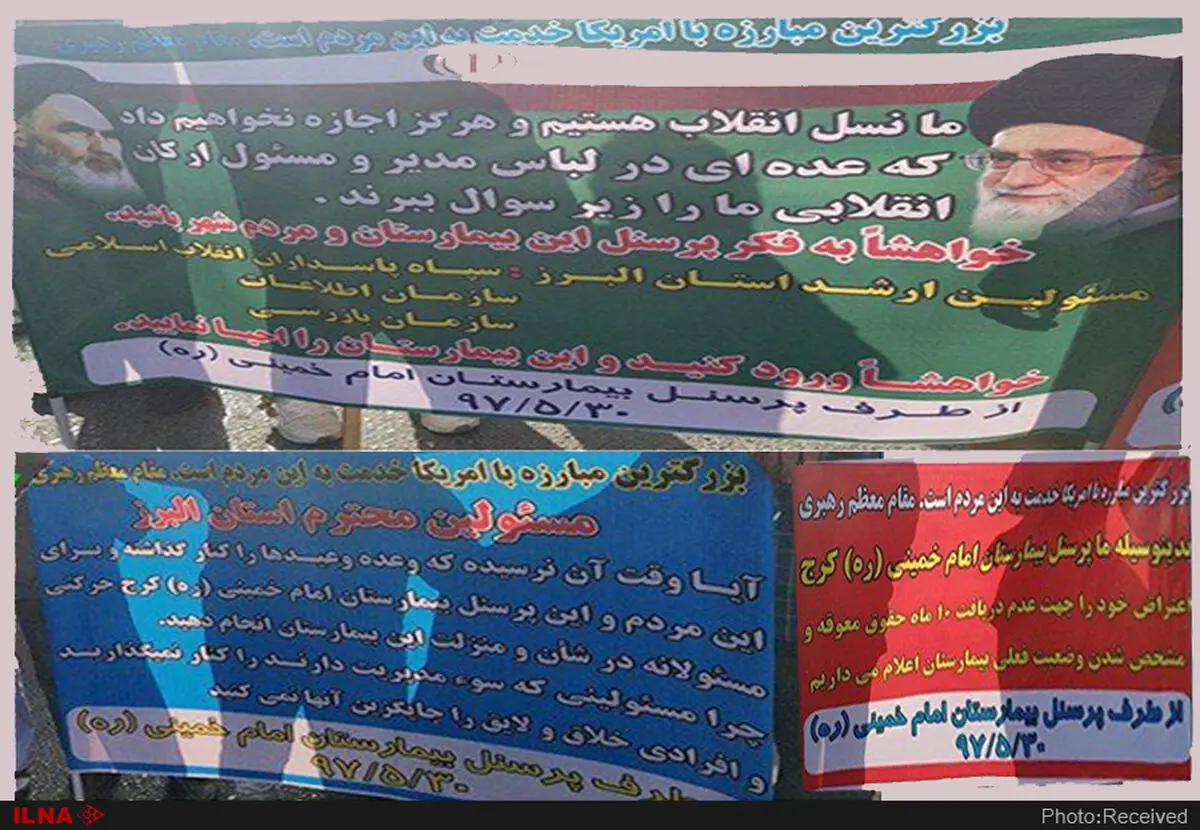 بزرگترین مبارزه با امریکا خدمت به این مردم است. مقام معظم رهبری
(۱)
ما نسل انقلاب هستیم و هرگز اجازه نخواهیم داد
که عده ای در لباس مدیر و مسئول ارکان
انقلابی ما را زیر سوال ببرند .
خواهشاً به فکر پرسنل این بیمارستان و مردم شهر باشید.
مسئولین ارشد استان البرز : سپاه پاسداران انقلاب اسلامی
سازمان اطلاعات
سازمان بازرسی
خواهشاً ورود کنید و این بیمارستان را احیا نمایید.
از طرف پرسنل بیمارستان امام خمینی (ره)
۹۷/۵/۳۰
بزرگترین مبارزه با امریکا خدمت به این مردم است. مقام معظم رهبری
مسئولین محترم استان البرز
آیا وقت آن نرسیده که وعده وعیدها را کنار گذاشته و برای
این مردم و این پرسنل بیمارستان امام خمینی (ره) کرج حرکتی
مسئولانه در شأن و منزلت این بیمارستان انجام دهید.
چرا مسئولینی که سوء مدیریت دارند را کنار نمیگذارید
و افرادی خلاق و لایق را جایگزین آنها نمی کنید
طرف پرسنل بیمارستان امام خمینی (ره)
۹۷/۵/۳۰
بزرگترین مبارزه با امریکا خدمت به این مردم است. مقام معظم رهبری
بدینوسیله ما پرسنل بیمارستان امام خمینی (ره) کرج
اعتراض خود را جهت عدم دریافت ۱۰ ماه حقوق معوقه و
مشخص شدن وضعیت فعلی بیمارستان اعلام می داریم
از طرف پرسنل بیمارستان امام خمینی (ره)
۹۷/۵/۳۰
ILNA
Photo:Received